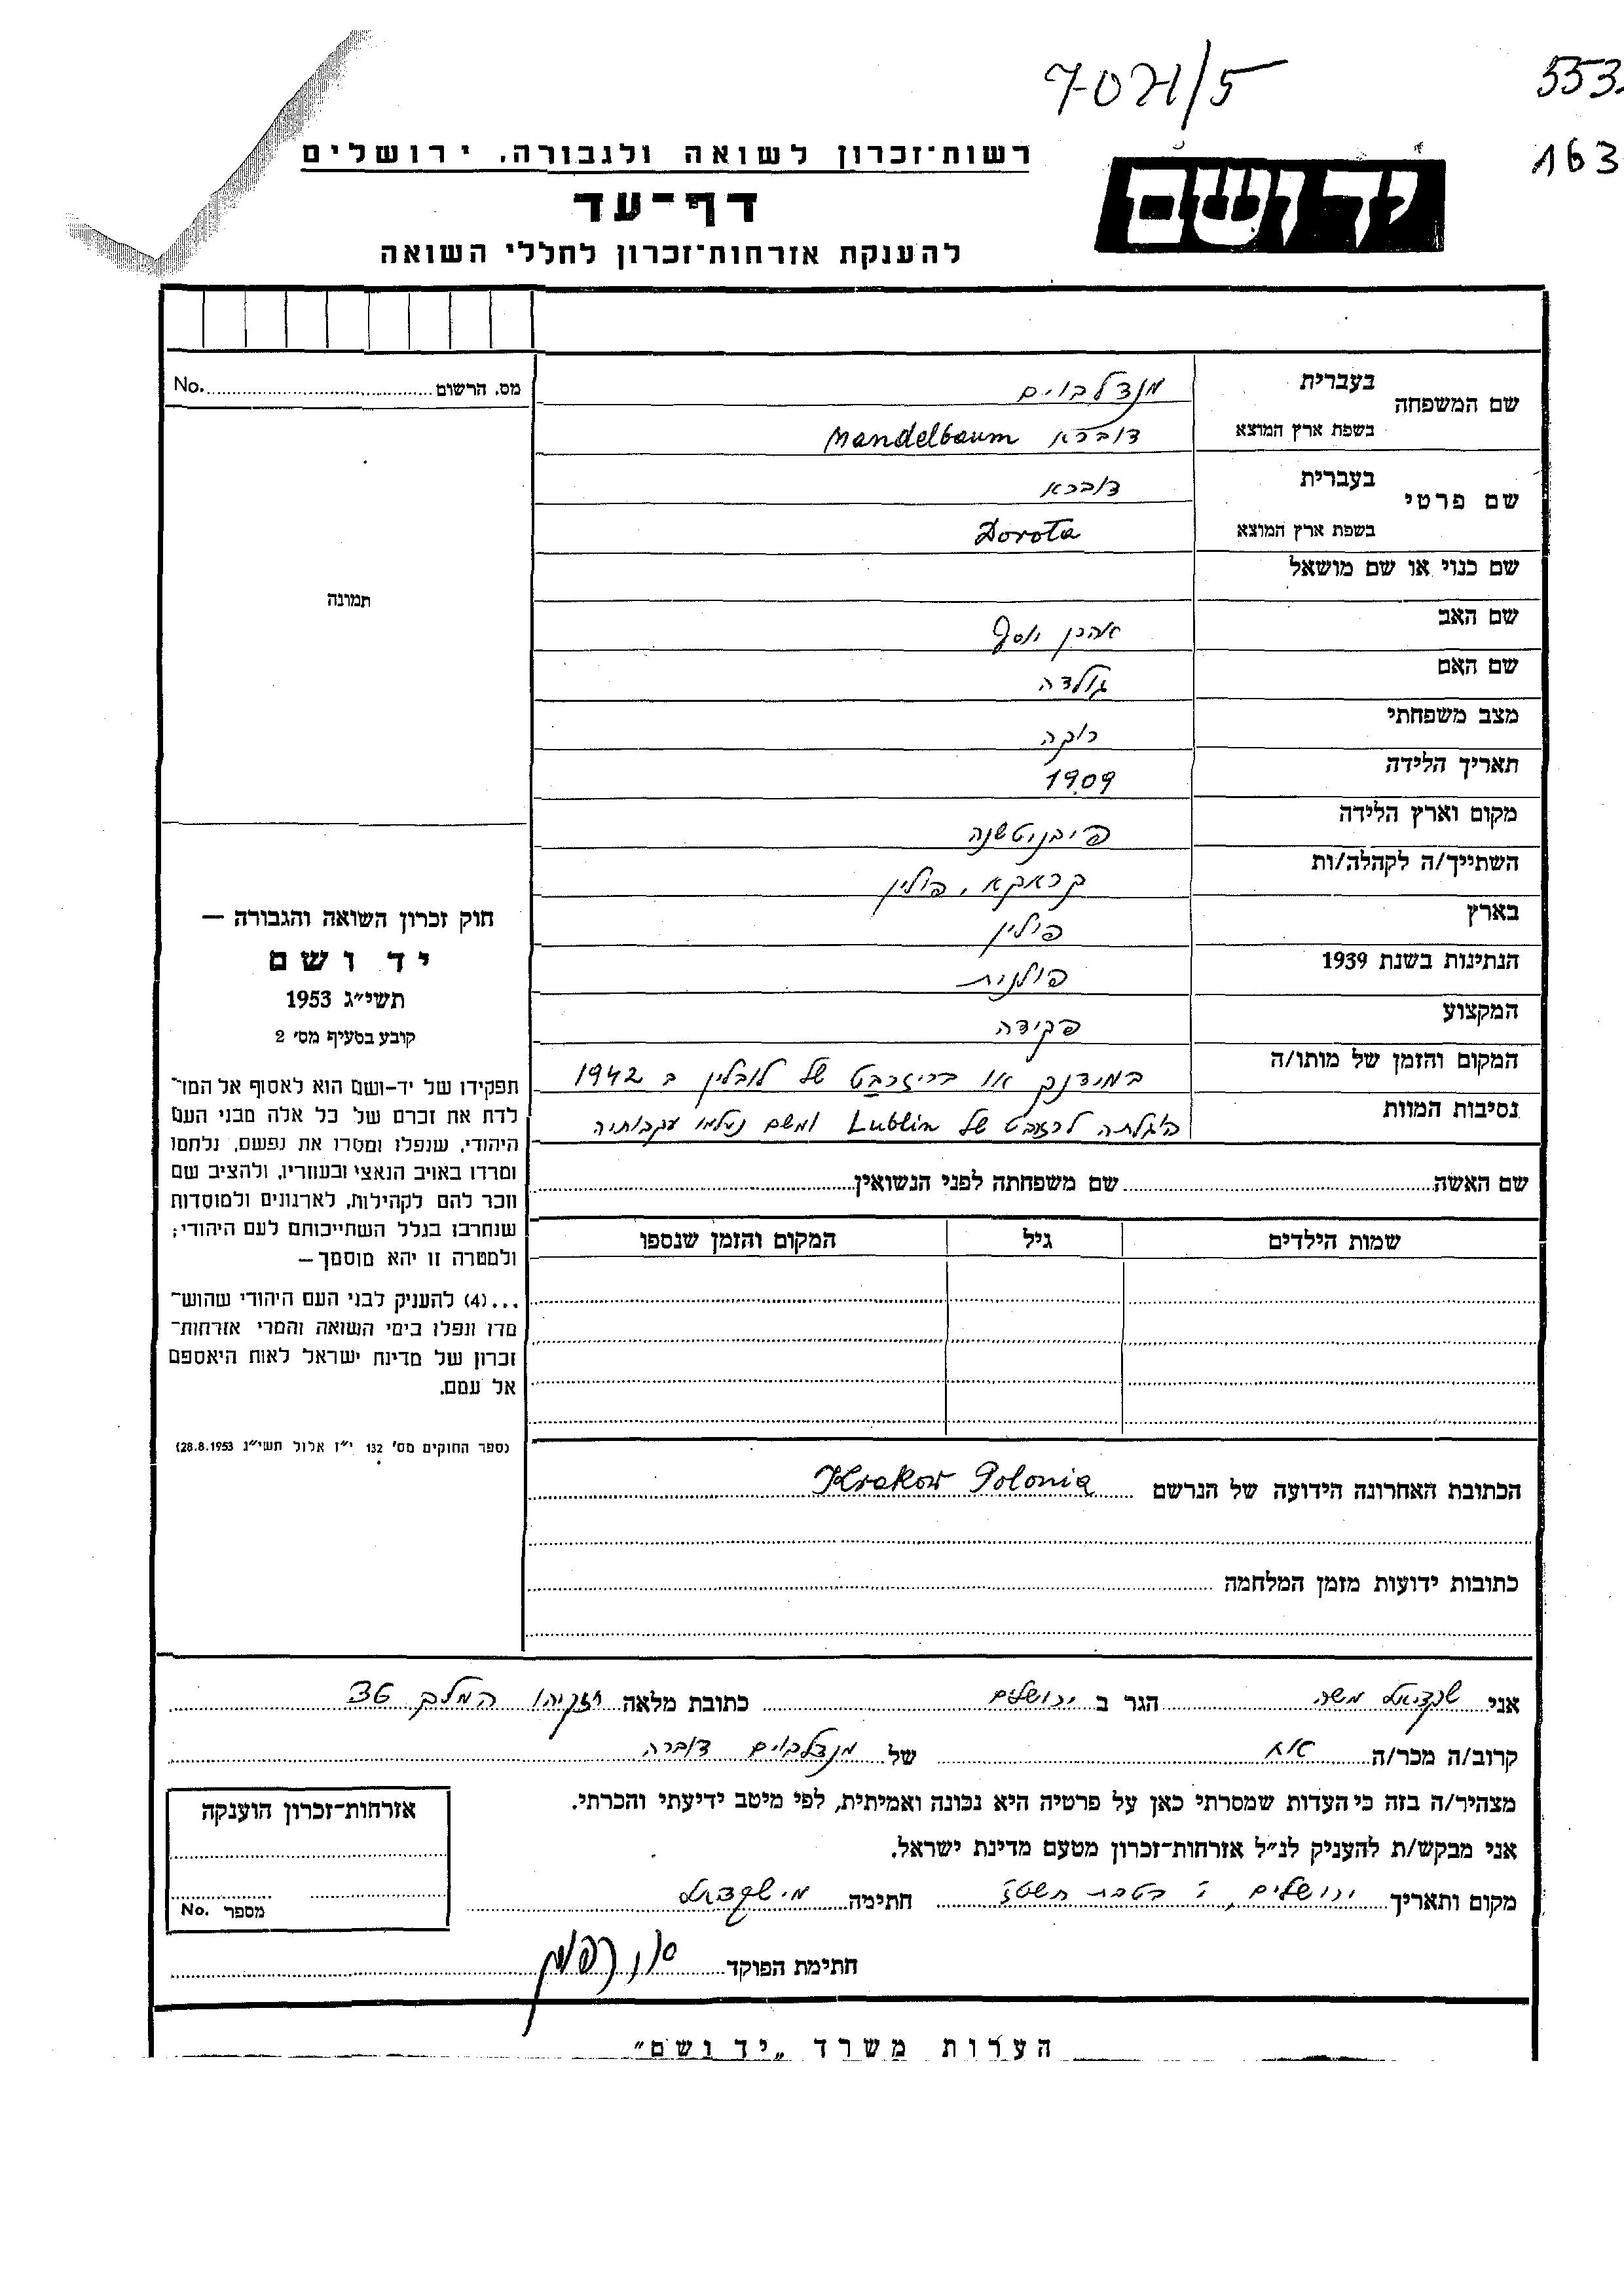 7021/5
553
163
רשות־זכרון לשואה ולגבורה, ירושלים
יד ושם
דף־עד
להענקת אזרחות־זכרון לחללי השואה
מס. הרשום No.
שם המשפחה בעברית מנדלבוים
בשפת ארץ המוצא דוברא Mandelbaum
שם פרטי בעברית דוברא
בשפת ארץ המוצא Dorota
שם כנוי או שם מושאל
שם האב אהרן יוסף
שם האם גולדה
מצב משפחתי רוקה
תאריך הלידה 1909
מקום וארץ הלידה
השתייך/ה לקהלה/ות קראקא, פולין
בארץ פולין
הנתינות בשנת 1939 פולנית
המקצוע פקידה
המקום והזמן של מותו/ה במידנק או של לובלין ב 1942
נסיבות המוות של Lublin ומשם נעלמו עקבותיה
תמונה
חוק זכרון השואה והגבורה —
יד ושם
תשי״ג 1953
קובע בסעיף מס׳ 2
תפקידו של יד-ושם הוא לאסוף אל המו־
לדת את זכרם של כל אלה מבני העם
היהודי, שנפלו ומסרו את נפשם, נלחמו
ומרדו באויב הנאצי ובעוזריו, ולהציב שם
וזכר להם לקהילות, לארגונים ולמוסדות
שנחרבו בגלל השתייכותם לעם היהודי;
ולמטרה זו יהא מוסמך —
...(4) להעניק לבני העם היהודי שהוש־
מדו ונפלו בימי השואה והמרי אזרחות־
זכרון של מדינת ישראל לאות היאספם
אל עמם.
(ספר החוקים מס׳ 132 י״ז אלול תשי״ג 28.8.1953)
שם האשה שם משפחתה לפני הנשואין
שמות הילדים גיל המקום והזמן שנספו
הכתובת האחרונה הידועה של הנרשם Krakow Polonia
כתובות ידועות מזמן המלחמה
אני משה הגר ב ירושלים כתובת מלאה חזקיהו המלך
קרוב/ה מכר/ה אח של מנדלבוים דוברה
מצהיר/ה בזה כי העדות שמסרתי כאן על פרטיה היא נכונה ואמיתית, לפי מיטב ידיעתי והכרתי.
אני מבקש/ת להעניק לנ״ל אזרחות־זכרון מטעם מדינת ישראל.
מקום ותאריך ירושלים, בטבת חתימה
חתימת הפוקד
אזרחות־זכרון הוענקה
מספר No.
הערות משרד „יד ושם״